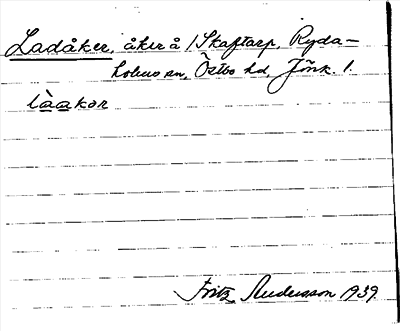 Ladåker, åker å 1 Skaftarp, Ryda-
holms sn, Östbo hd, Jönk. l.
làakər
Fritz Andersson 1939.